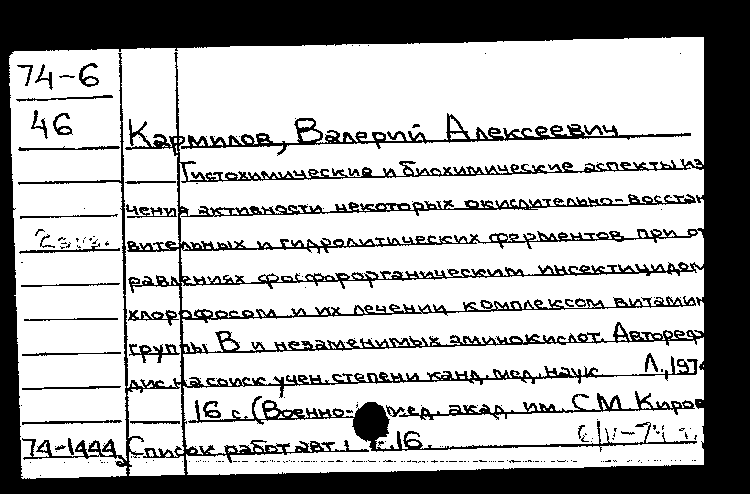 74-6
46
Кармилов, Валерий Алексеевич
Гистохимические и биохимические аспекты из
чения активности некоторых окислительно-восстан
2 экз.
вительных и гидролитических ферментов при от
равлениях фосфорорганическим инсектицидом
хлорофосом и их лечении комплексом витамин
группы В и незаменимых аминокислот. Автореф
дис. на соиск. учен. степени канд. мед. наук Л., 197
16 с. (Военно-мед. акад. им. С М Киров
74-1444 Список работ авт. с. 16.